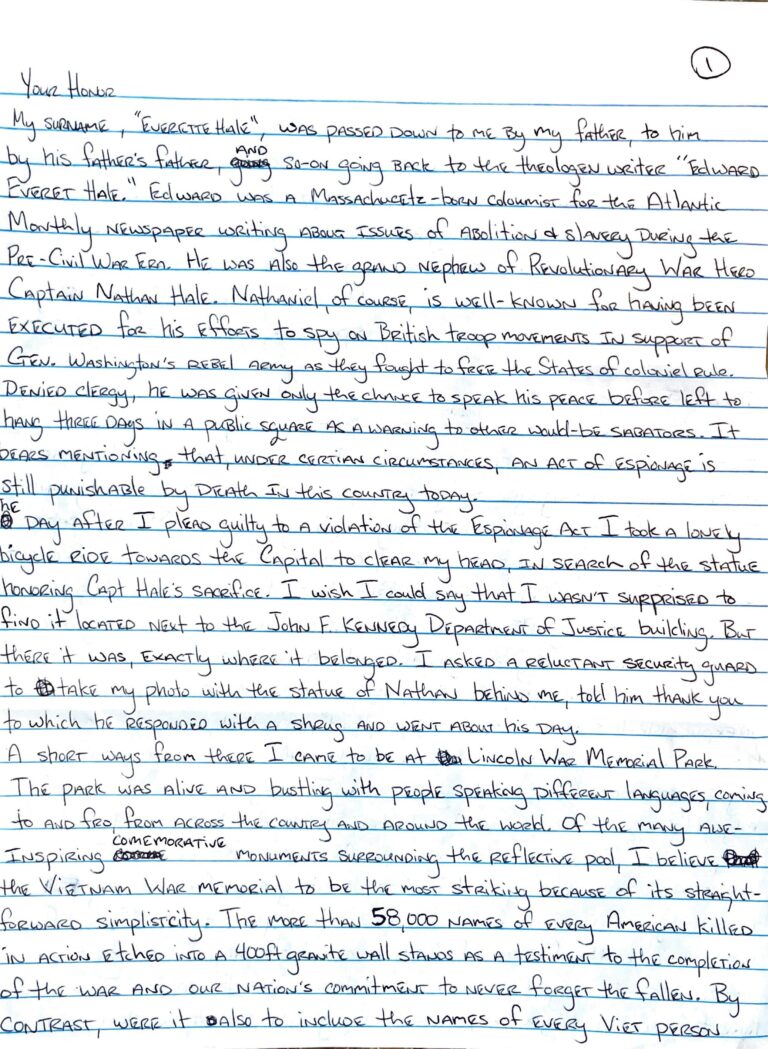 1
Your Honor
My surname, "Everette Hale", was passed down to me by my father, to him
by his father's father, and so-on going back to the theologen writer "Edward
Everet Hale." Edward was a Massachucetz-born coloumist for the Atlantic
Monthly newspaper writing about issues of abolition & slavery during the
Pre-Civil War Era. He was also the grand nephew of Revolutionary War Hero
Captain Nathan Hale. Nathaniel, of course, is well-known for having been
executed for his efforts to spy on British troop movements in support of
Gen. Washington's rebel army as they fought to free the States of coloniel rule.
Denied clergy, he was given only the chance to speak his peace before left to
hang three days in a public square as a warning to other would-be sabators. It
bears mentioning, that, under certian circumstances, an act of espionage is
still punishable by death in this country today.
he Day after I plead guilty to a violation of the Espionage Act I took a lonely
bicycle ride towards the Capital to clear my head, in search of the statue
honoring Capt Hale's sacrifice. I wish I could say that I wasn't supprised to
find it located next to the John F. Kennedy Department of Justice building. But
there it was, exactly where it belonged. I asked a reluctant security guard
to take my photo with the statue of Nathan behind me, told him thank you
to which he responded with a shrug and went about his day.
A short ways from there I came to be at Lincoln War Memorial Park.
The park was alive and bustling with people speaking different languages, coming
to and fro, from across the country and around the world. Of the many awe-
inspiring comemorative monuments surrounding the reflective pool, I believe
the Vietnam War memorial to be the most striking because of its straight-
forward simplisticity. The more than 58,000 names of every American killed
in action etched into a 400ft granite wall stands as a testiment to the completion
of the war and our nation's commitment to never forget the fallen. By
contrast, were it also to include the names of every Viet person